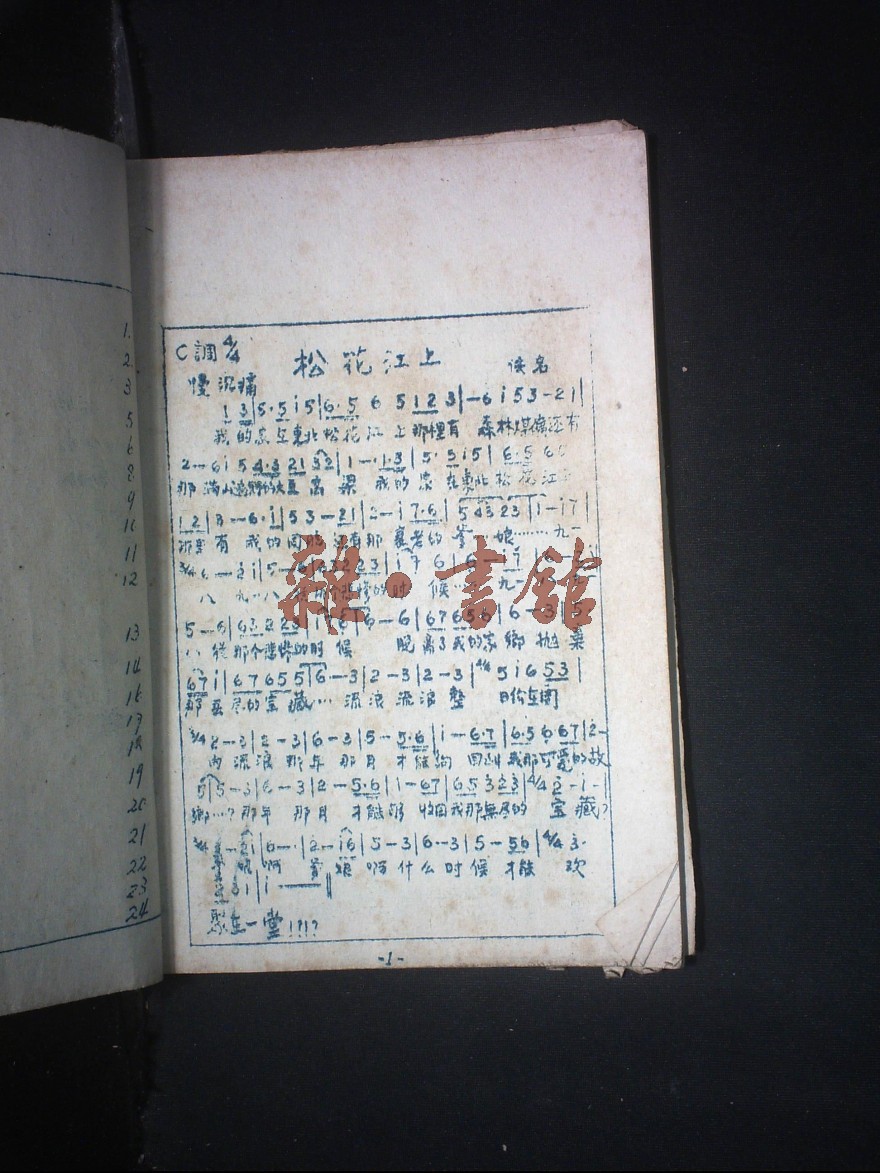 1.
2
3
5
6
8
9
10
11
12
13
14
16
17
18
19
20
21
22
23
24
C調 4/4
松花江上
佚名
慢 沉痛
1 3|5·5 i 5|6·5 6 5 1 2 3|—6 i 5 3—2 1|
我的家在東北松花江上那裡有 森林煤礦还有
2—6 i 5 4·3 2 1 3 2|1—·1·3|5·5 i 5|6·5 6
那满山 高粱 我的家在東北松花江
1 2|3—6·i|5 3—2 1|2—i 7·6|5 4 3 2 3|1—i 7|
那里有 我的同胞还有那衰老的爹 娘……九一
八 九一八 的时候… 九一
5—6|6 7 2 2 3|
八 從那个悲慘的时候 脱离了我的家鄉 抛棄
6 7 i|6 7 6 5 5|6—3|2—3|2—3|4/4 5 i 6 5 3|
那無尽的宝藏… 流浪 流浪 整日价在関
3/4 2—3|2—3|6—3|5—5·6|i—6·7|6·5 6 6 7|2—
内 流浪 那年 那月 才能夠 回到我那可爱的故
5|5—3|6—3|2—5·6|1—6 7|6 5 3 2 3|4/4 2—i—|
鄉…？那年 那月 才能够 收回我那無尽的 宝藏？
啊 爹娘啊 什么时候 才能 欢
聚在一堂!?!?
-1-
雜·書館